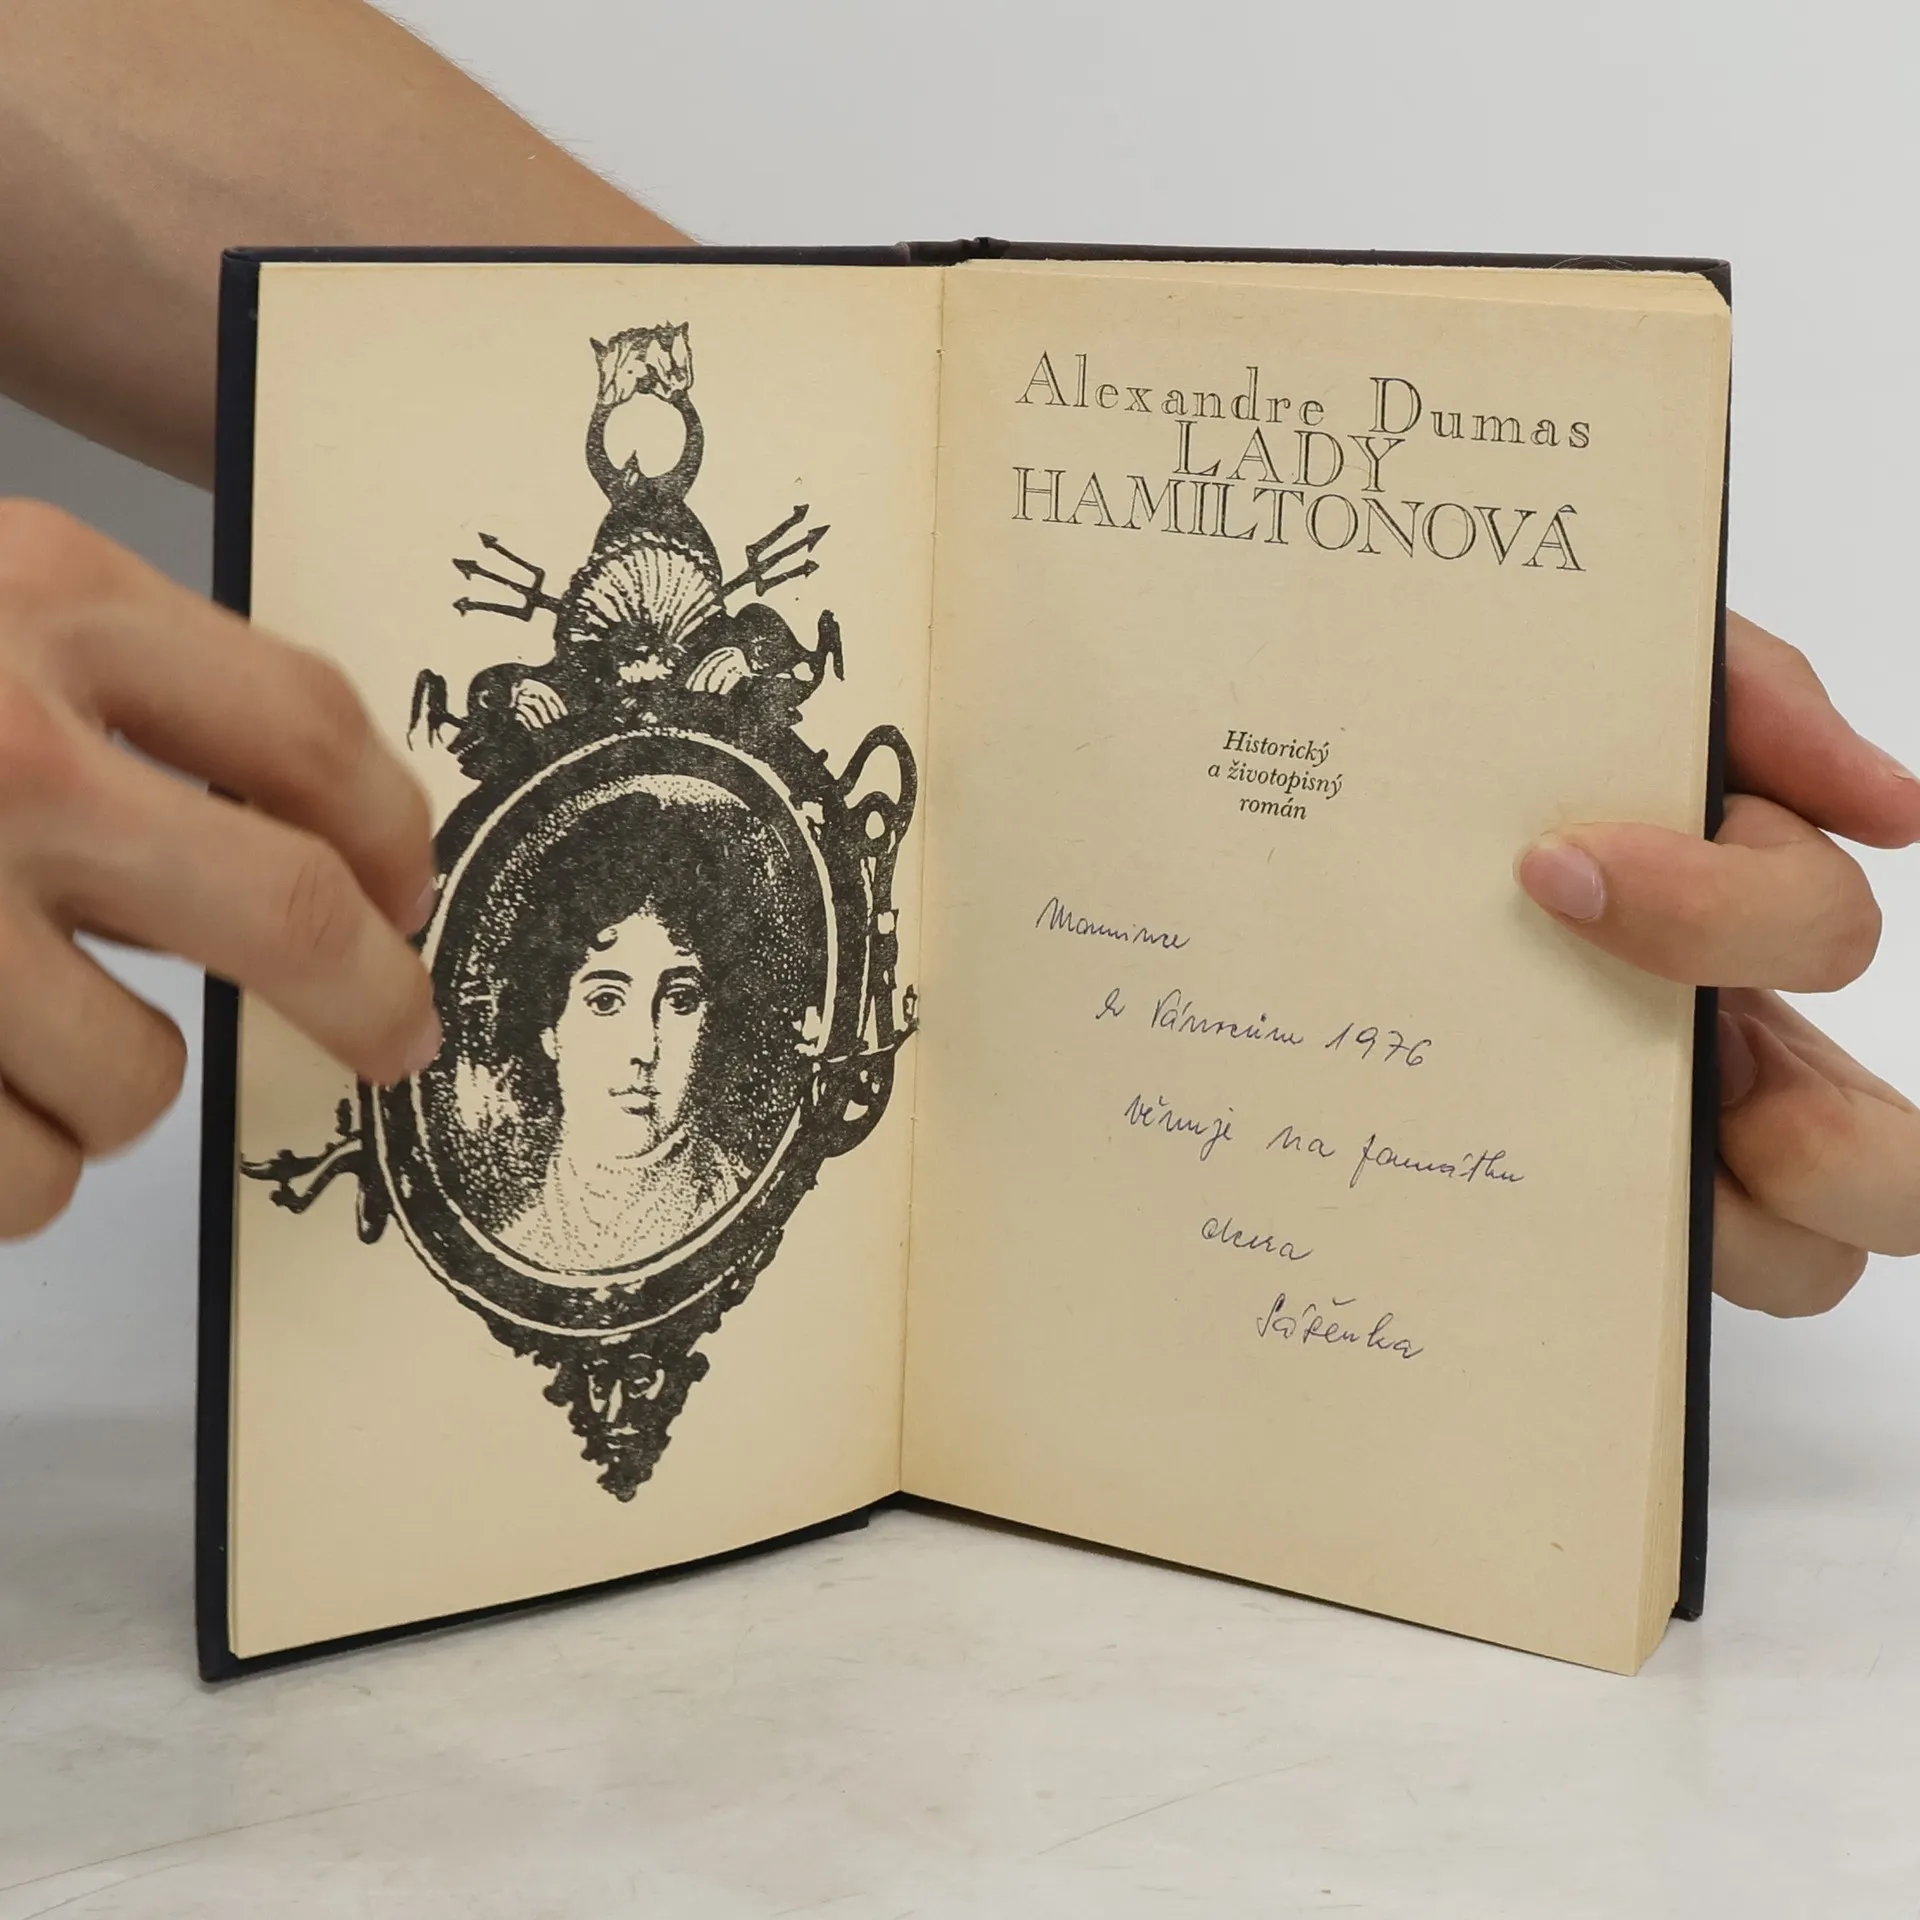 Alexandre Dumas
LADY
HAMILTONOVÁ
Historický
a životopisný
román
Mamince
k Vánocům 1976
věnuje na památku
dcera